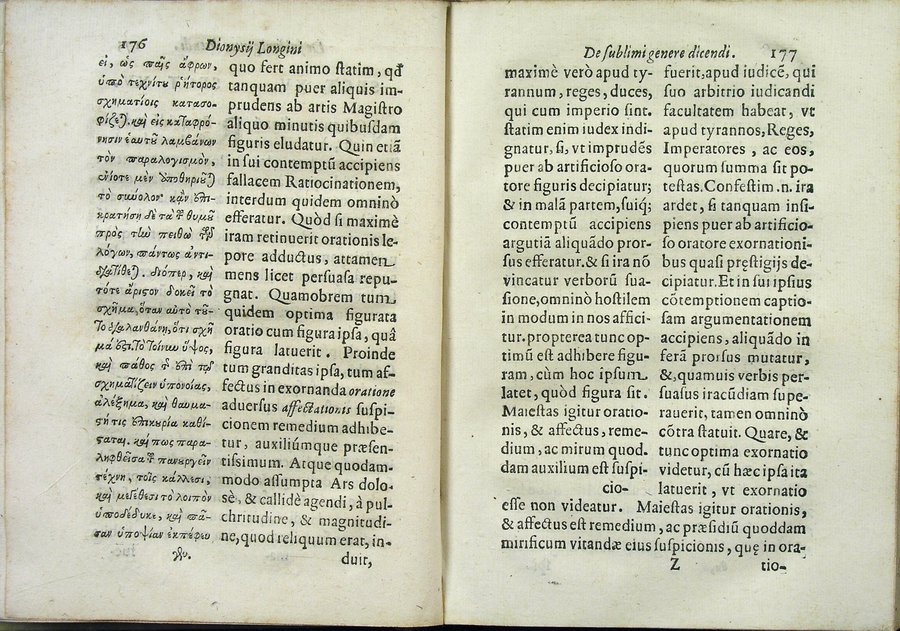 176
Dionysij Longini
εἰ, ὡς παῖς ἄφρων,
ὑπὸ τεχνίτου ῥήτορος
σχηματίοις κατασο-
φίζεται. καὶ εἰς καταφρό-
νησιν ἑαυτοῦ λαμβάνων
τὸν παραλογισμὸν,
ἐνίοτε μὲν ἀποθηριοῦται
τὸ σύνολον· κἂν ἐπι-
κρατήσῃ δὲ τοῦ θυμοῦ
πρὸς τὴν πειθὼ τῶν
λόγων, πάντως ἀντι-
διατίθεται. διόπερ, καὶ
τότε ἄριστον δοκεῖ τὸ
σχῆμα, ὅταν αὐτὸ τοῦ-
το διαλανθάνῃ, ὅτι σχῆ-
μά ἐστι. Τὸ τοίνυν ὕψος,
καὶ πάθος τῆς ἐπὶ τῷ
σχηματίζειν ὑπονοίας,
ἀλέξημα, καὶ θαυμα-
στή τις ἐπικουρία καθί-
σταται. καί πως παρα-
ληφθεῖσα ἡ πανουργεῖν
τέχνη, τοῖς κάλλεσι,
καὶ μεγέθεσι τὸ λοιπὸν
ὑποδέδυκε, καὶ πᾶ-
σαν ὑποψίαν ἐκπέφευ
γεν.
quo fert animo statim, qđ
tanquam puer aliquis im-
prudens ab artis Magistro
aliquo minutis quibusdam
figuris eludatur. Quin etiā
in sui contemptū accipiens
fallacem Ratiocinationem,
interdum quidem omninò
efferatur. Quòd si maximè
iram retinuerit orationis le-
pore adductus, attamen
mens licet persuasa repu-
gnat. Quamobrem tum
quidem optima figurata
oratio cum figura ipsa, quâ
figura latuerit. Proinde
tum granditas ipsa, tum af-
fectus in exornanda oratione
aduersus affectationis suspi-
cionem remedium adhibe-
tur, auxiliúmque præsen-
tissimum. Atque quodam-
modo assumpta Ars dolo-
sè, & callidè agendi, à pul-
chritudine, & magnitudi-
ne, quod reliquum erat, in-
duit,
De sublimi genere dicendi.
177
maximè verò apud ty-
rannum, reges, duces,
qui cum imperio sint.
statim enim iudex indi-
gnatur, si, vt imprudēs
puer ab artificioso ora-
tore figuris decipiatur;
& in malā partem, suiq;
contemptū accipiens
argutiā aliquādo pror-
sus efferatur. & si ira nō
vincatur verborū sua-
sione, omninò hostilem
in modum in nos affici-
tur. propterea tunc op-
timū est adhibere figu-
ram, cùm hoc ipsum
latet, quòd figura sit.
Maiestas igitur oratio-
nis, & affectus, reme-
dium, ac mirum quod.
dam auxilium est suspi-
cio-
fuerit, apud iudicē, qui
suo arbitrio iudicandi
facultatem habeat, vt
apud tyrannos, Reges,
Imperatores, ac eos,
quorum summa sit po-
testas. Confestim .n. ira
ardet, si tanquam insi-
piens puer ab artificio-
so oratore exornationi-
bus quasi pręstigijs de-
cipiatur. Et in sui ipsius
cōtemptionem captio-
sam argumentationem
accipiens, aliquādo in
ferā prorsus mutatur,
&, quamuis verbis per-
suasus iracūdiam supe-
rauerit, tamen omninò
cōtra statuit. Quare, &
tunc optima exornatio
videtur, cū hæc ipsa ita
latuerit, vt exornatio
esse non videatur. Maiestas igitur orationis,
& affectus est remedium, ac præsidiū quoddam
mirificum vitandæ eius suspicionis, quę in ora-
Z
tio-